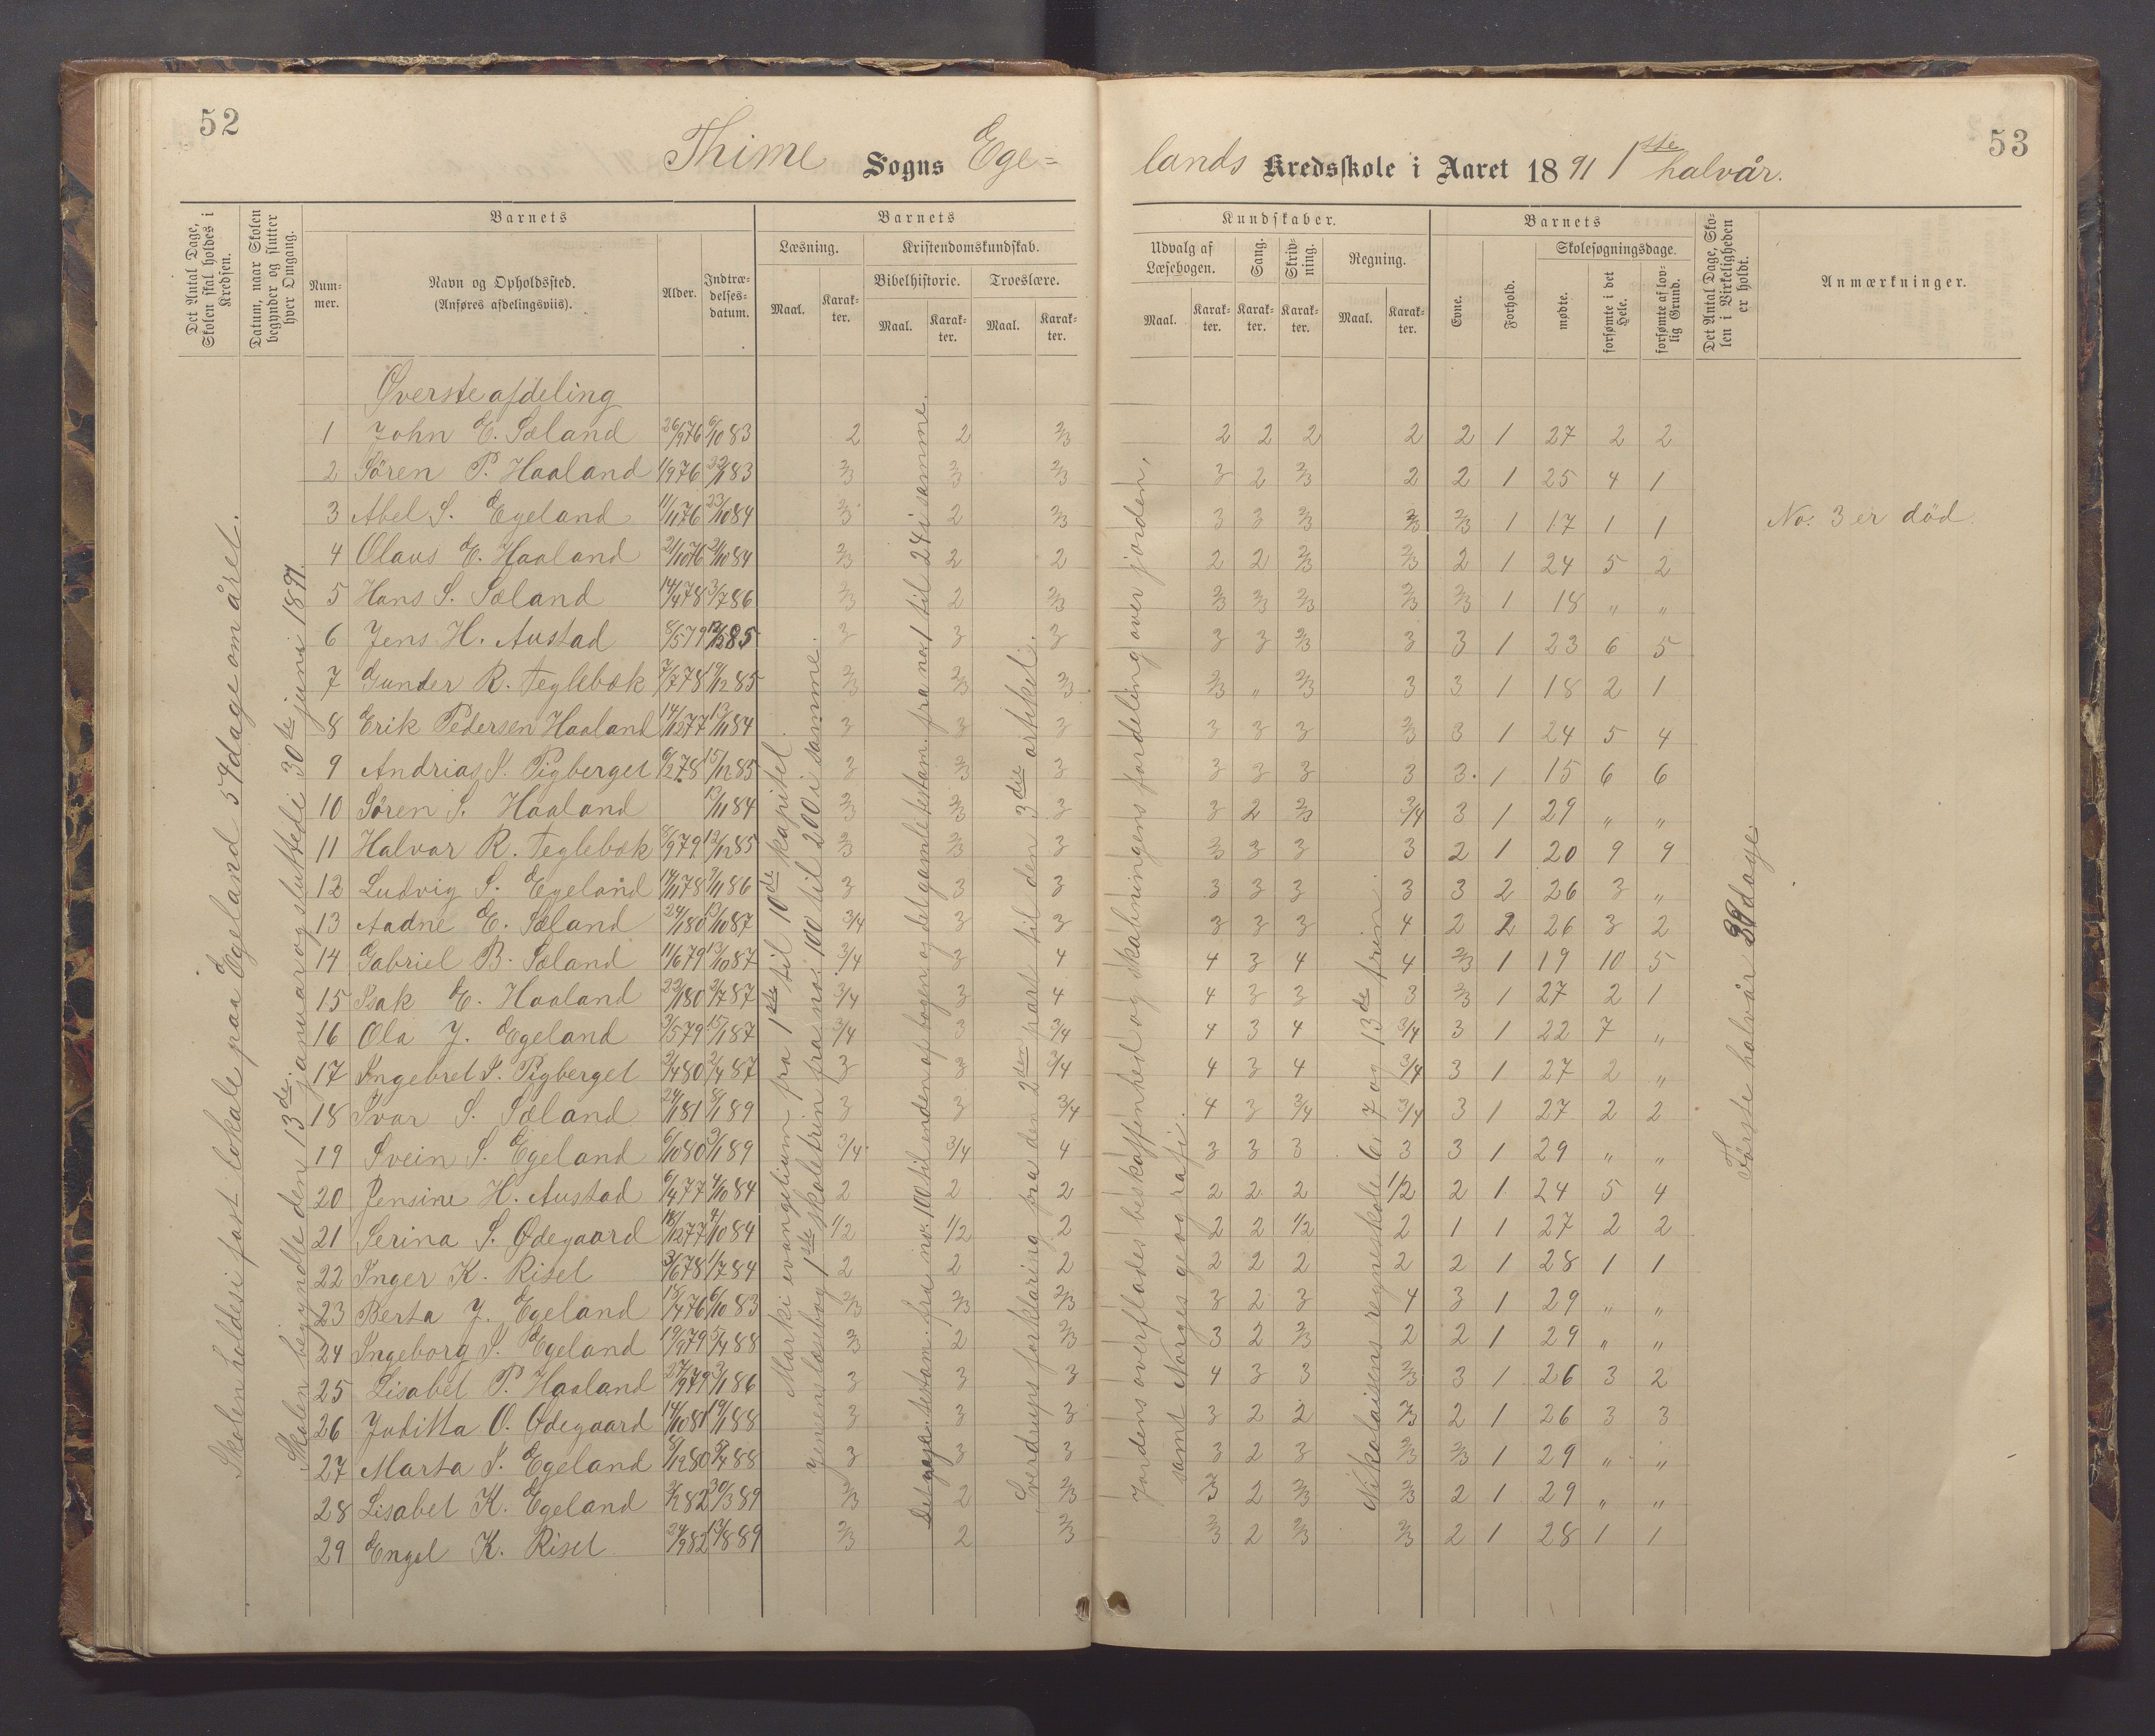 52
Thime Sogns Ege=
Det Antal Dage, Skolen skal holdes i Kredsen.
Datum, naar Skolen begynder og slutter hver Omgang.
Barnets
Nummer.
Navn og Opholdssted.
(Anføres afdelingsviis).
Alder.
Indtrædelsesdatum.
Barnets
Læsning.
Kristendomskundskab.
Bibelhistorie.
Troeslære.
Maal. Karakter. Maal. Karakter. Maal. Karakter.
Skolen holdes i fast lokale paa Egeland 54 dage om året.
Skolen begyndte den 13de januar og sluttedi 30te juni 1891.
Øverste afdeling
1 John E. Sæland 26/9 76 6/10 83 2 2 2/3
2 Sören P. Haaland 1/9 76 22/1 83 2/3 2/3 2/3
3 Abel S. Egeland 11/11 76 23/10 84 2/3 2 2/3
4 Olaus E. Haaland 21/10 76 21/10 84 2/3 2 2
5 Hans S. Sæland 14/4 78 3/7 86 2/3 2 2/3
6 Jens H. Austad 8/5 79 12/12 85 3 3 3
7 Gunder R. Teglebæk 7/7 78 19/12 85 2/3 2/3 2/3
8 Erik Pedersen Haaland 14/12 77 13/11 84 3 3 3
9 Andrias S. Pigberget 6/2 78 15/12 85 3 2/3 3
10 Sören S. Haaland 13/11 84 2/3 2/3 3
11 Halvor R. Teglebæk 8/9 79 12/12 85 2/3 2/3 3
12 Ludvig S. Egeland 17/11 78 9/11 86 3 3 3
13 Aadne E. Sæland 24/1 80 13/10 87 3/4 3 3
14 Gabriel B. Sæland 11/6 79 13/10 87 3/4 3 4
15 Isak E. Haaland 22/1 80 2/7 87 3/4 3 4
16 Ola J. Egeland 3/5 79 15/1 87 3/4 3 3/4
17 Ingebret S. Pigberget 2/4 80 2/4 87 3 3 3/4
18 Ivar S. Sæland 24/1 81 8/1 89 3 3 3/4
19 Svein S. Egeland 6/10 80 3/1 89 3/4 3/4 4
20 Jensine H. Austad 6/4 77 4/10 84 2 2 2
21 Serina S. Ødegaard 18/12 77 4/10 84 1/2 1/2 2
22 Inger K. Risel 3/6 78 1/7 84 2 2 2
23 Berta J. Egeland 18/4 76 6/10 83 2/3 2/3 2/3
24 Ingeborg S. Egeland 19/6 79 5/4 88 2/3 2 2/3
25 Lisabet P. Haaland 27/9 79 3/1 86 3 3 3
26 Juditta O. Ødegaard 14/10 81 19/1 88 3 3 3
27 Marta S. Egeland 9/12 80 5/4 88 3 3 3
28 Lisabet K. Egeland 2/2 82 30/3 89 2/3 2 2/3
29 Engel K. Risel 24/9 82 13/8 89 2/3 2 2/3
Marki evangelium fra 1ste til 10de kapitel.
Jensens læsebog 1ste skoletrin fra no: 100 til 200 i samme.
Det gaml. testam. fra no: 100 til enden af bogen og det gamle testam. fra no 1 til 24 i samme.
Sverdrups forklaring fra den 2den part til den 3die artikel.
53
lands Kredsskole i Aaret 1891 1ste halvår.
Kundskaber.
Udvalg af Læsebogen.
Sang.
Skrivning.
Regning.
Maal. Karakter. Karakter. Karakter. Maal. Karakter.
Barnets
Evne.
Forhold.
Skolesøgningsdage.
mødte.
forsømte i det Hele.
forsømte af lovlig Grund.
Det Antal Dage, Skolen i Virkeligheden er holdt.
Anmærkninger.
2 2 2 2 2 1 27 2 2
3 2 2/3 2 2 1 25 4 1
3 3 2/3 2/3 2/3 1 17 1 1 No: 3 er död.
2 2 2/3 2/3 2 1 24 5 2
2/3 2/3 2/3 2/3 2/3 1 18 " "
3 3 2/3 3 3 1 23 6 5
2/3 " 2/3 3 3 1 18 2 1
3 3 3 2/3 3 1 24 5 4
3 3 3 3 3 1 15 6 6
3 2 2/3 3/4 3 1 29 " "
2/3 3 3 3 2 1 20 9 9
3 3 3 3 3 2 26 3 "
3 3 3 4 2 2 26 3 2
4 3 4 4 2/3 1 19 10 5
4 3 3 3 2/3 1 27 2 1
4 3 4 3/4 3 1 22 7 "
4 3 4 3/4 3 1 27 2 "
4 3 3/4 3/4 3 1 27 2 2
3 3 3 3 3 1 29 " "
2 2 2 1/2 2 1 24 5 4
2 2 1/2 2 1 1 27 2 2
2 2 2 2 2 1 28 1 1
3 2 3 4 3 1 29 " "
3 2 2/3 2 2 1 29 " "
4 3 3 2/3 3 1 26 3 2
3 2 2 2/3 2 1 26 3 3
3 2 3 2/3 2/3 1 29 " "
3 2 2/3 2/3 2 1 29 " "
2/3 2 2/3 2/3 2 1 28 1 1
Jordens overflades beskaffenhed og skabningens fordeling over jorden,
samt Norges geografi.
Nikolaisens regneskole 6, 7 og 13de trin
Förste halvår dage.